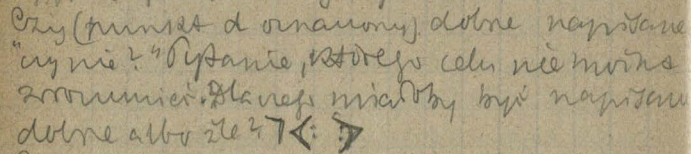 Czy (punkt d oznaczony) dobrze napisane
"czy nie?" Pytanie, którego celu nie można
zrozumieć. Dlaczego miałoby być napisane
dobrze albo źle?